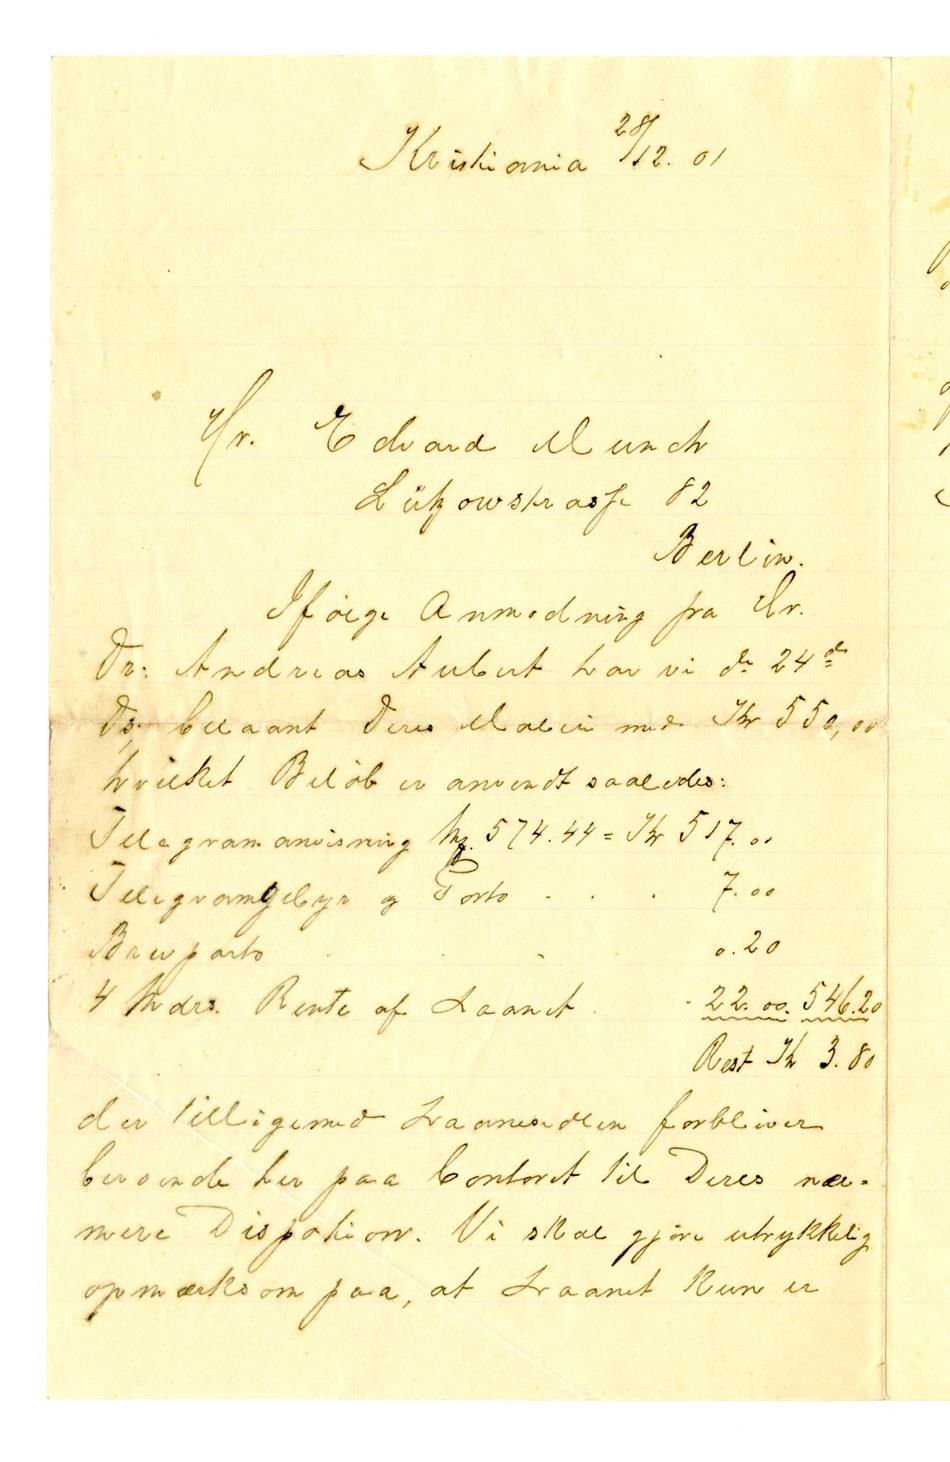 Kristiania 28/12. 01
Hr. Edvard Munch
Lützowstrasse 82
Berlin.
Ifølge Anmodning fra Hr.
Dr: Andreas Aubert har vi d. 24de
ds. belaant Deres Maleri med Kr 550,00
hvilket Beløb er anvendt saaledes:
Telegramanvisning Mk. 574.44 = Kr 517.00
Telegramgebyr og Porto . . . 7.00
Brevporto . . . 0.20
4 Mdrs. Rente af Laanet . . 22.00. 546.20
Rest Kr 3.80
der tilligemed Laanesedlen forbliver
beroende her paa Contoret til Deres næ-
mere Dispotion. Vi skal gjøre utrykkelig
opmærksom paa, at Laanet kun er